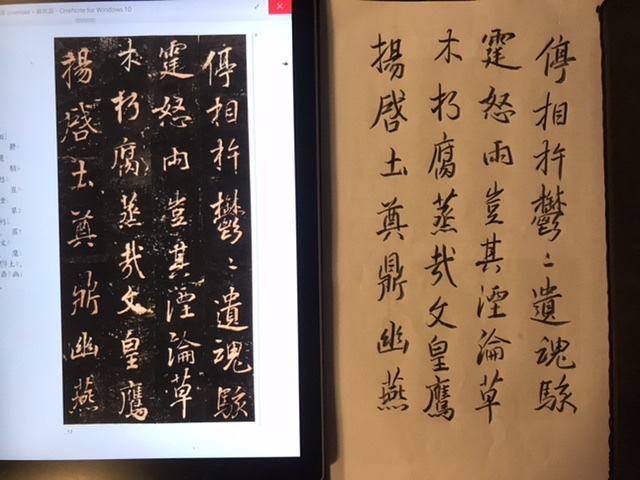 OneNote for Windows 10
停相杵鬱〻遺魂駭
霆怒雨豈其湮淪草
木朽腐蒸哉文皇鷹
揚啓土奠鼎幽燕
17
停相杵鬱〻遺魂駭
霆怒雨豈其湮淪草
木朽腐蒸哉文皇鷹
揚啓土奠鼎幽燕